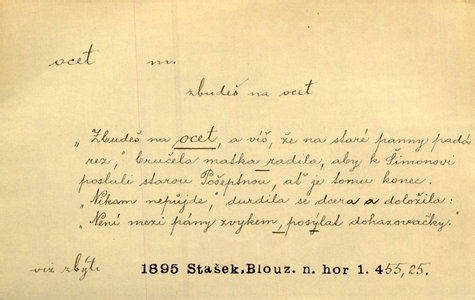 ocet m.
zbudeš na ocet
„Zbudeš na ocet, a víš, že na staré panny padá
rez," bručela matka radila, aby k Šimonovi
poslali starou Pošeptnou, ať je tomu konec.
„Nikam nepůjde," durdila se dcera a doložila:
„Není mezi pány zvykem, posýlat dohazovačky."
viz zbýti 1895 Stašek, Blouz. n. hor 1. 455,25.